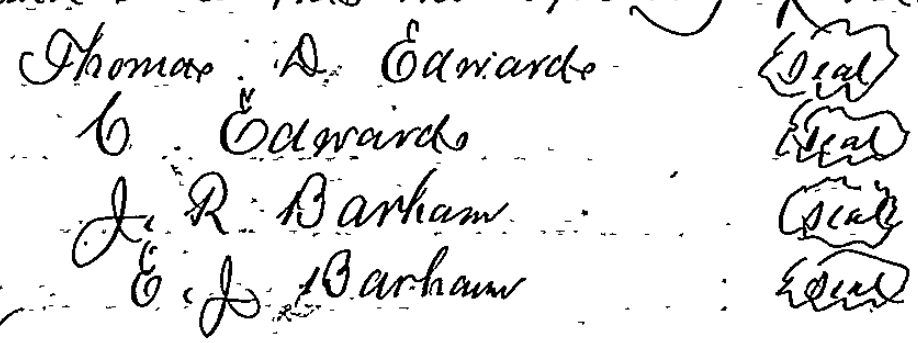 Thomas D. Edwards Seal
C. Edwards Seal
J. R. Barham Seal
E. J. Barham Seal